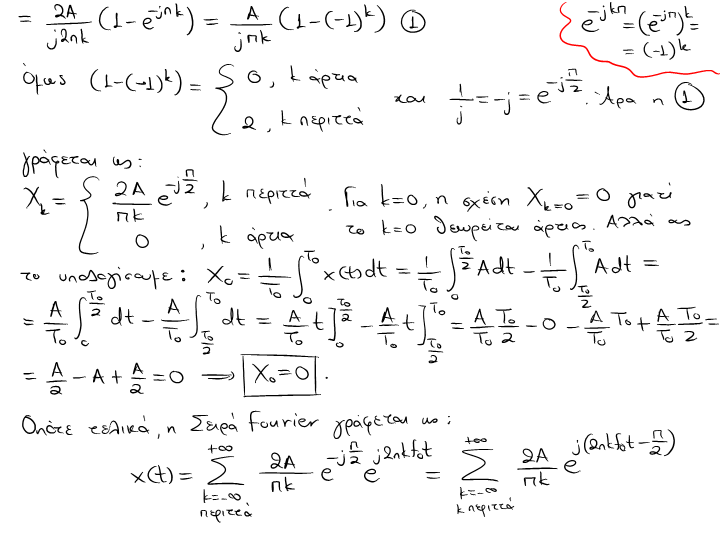 = 2A/(j2πk) (1-e^{-jπk}) = A/(jπk) (1-(-1)^k) ①
e^{-jkπ} = (e^{-jπ})^k =
= (-1)^k
Όμως (1-(-1)^k) = { 0, k άρτια
2, k περιττά
και 1/j = -j = e^{-jπ/2}. Άρα η ①
γράφεται ως:
X_k = { 2A/(πk) e^{-jπ/2}, k περιττά
0, k άρτια
. Για k=0, η σχέση X_{k=0} = 0 γιατί
το k=0 θεωρείται άρτιος. Αλλά ας
το υπολογίσουμε: X_0 = 1/T_0 ∫_0^{T_0} x(t)dt = 1/T_0 ∫_0^{T_0/2} Adt - 1/T_0 ∫_{T_0/2}^{T_0} Adt =
= A/T_0 ∫_0^{T_0/2} dt - A/T_0 ∫_{T_0/2}^{T_0} dt = A/T_0 t]_0^{T_0/2} - A/T_0 t]_{T_0/2}^{T_0} = A/T_0 T_0/2 - 0 - A/T_0 T_0 + A/T_0 T_0/2 =
= A/2 - A + A/2 = 0 ⟹ X_0 = 0.
Οπότε τελικά, η Σειρά Fourier γράφεται ως:
x(t) = ∑_{k=-∞ περιττά}^{+∞} 2A/(πk) e^{-jπ/2} e^{j2πkf_0t} = ∑_{k=-∞ k περιττά}^{+∞} 2A/(πk) e^{j(2πkf_0t-π/2)}